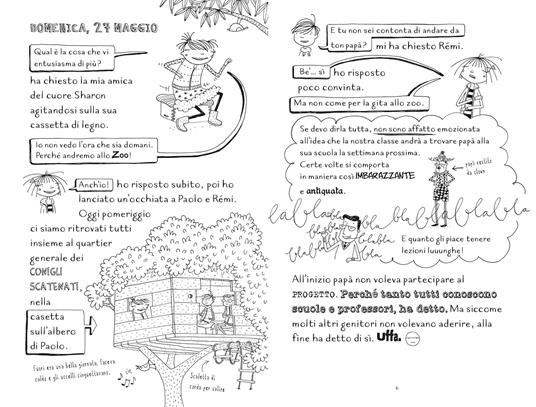 DOMENICA, 27 MAGGIO
Qual è la cosa che vi
entusiasma di più?
ha chiesto la mia amica
del cuore Sharon
agitandosi sulla sua
cassetta di legno.
Io non vedo l'ora che sia domani.
Perché andremo allo Zoo!
Anch'io! ho risposto subito, poi ho
lanciato un'occhiata a Paolo e Rémi.
Oggi pomeriggio
ci siamo ritrovati tutti
insieme al quartier
generale dei
CONIGLI
SCATENATI,
nella
casetta
sull'albero
di Paolo.
Fuori era una bella giornata, faceva
caldo e gli uccelli cinguettavano.
Scaletta di
corda per salire
E tu non sei contonta di andare da
ton papà? mi ha chiesto Rémi.
Be'... sì ho risposto
poco convinta.
Ma non come per la gita allo zoo.
Se devo dirla tutta, non sono affatto emozionata
all'idea che la nostra classe andrà a trovare papà alla
sua scuola la settimana prossima.
Certe volte si comporta
in maniera così IMBARAZZANTE
e antiquata.
papà vestito
da clown
blablabla blablablablablabla
blabla
blabla
blabla
E quanto gli piace tenere
lezioni luuunghe!
All'inizio papà non voleva partecipare al
PROGETTO. Perché tanto tutti conoscono
scuole e professori, ha detto. Ma siccome
molti altri genitori non volevano aderire, alla
fine ha detto di sì. Uffa.
6